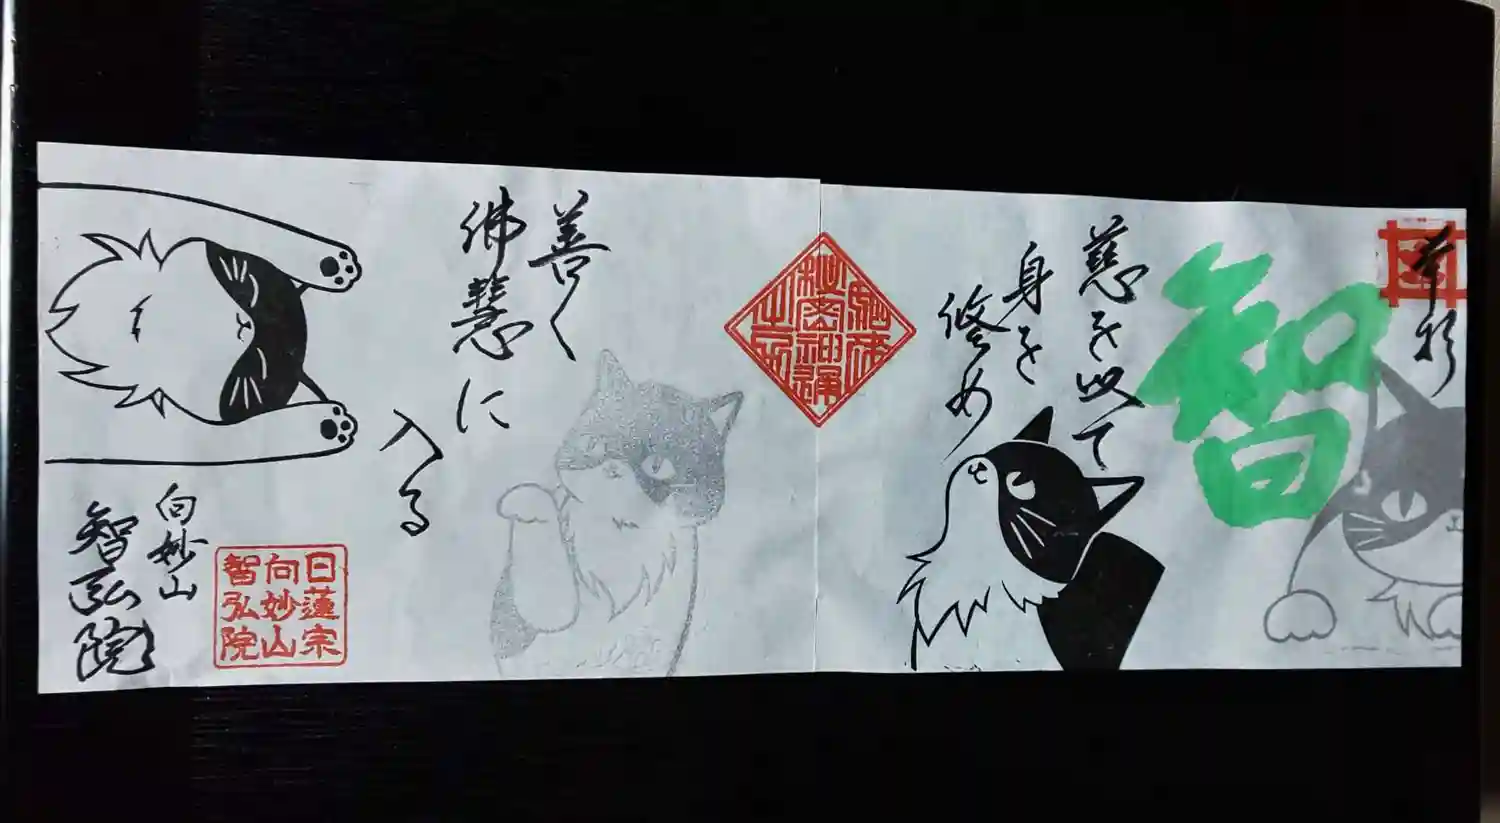 奉拝
智
慈を以て
身を
修め
善く
佛慧に
入る
日蓮宗
向妙山
智弘院
向妙山
智弘院